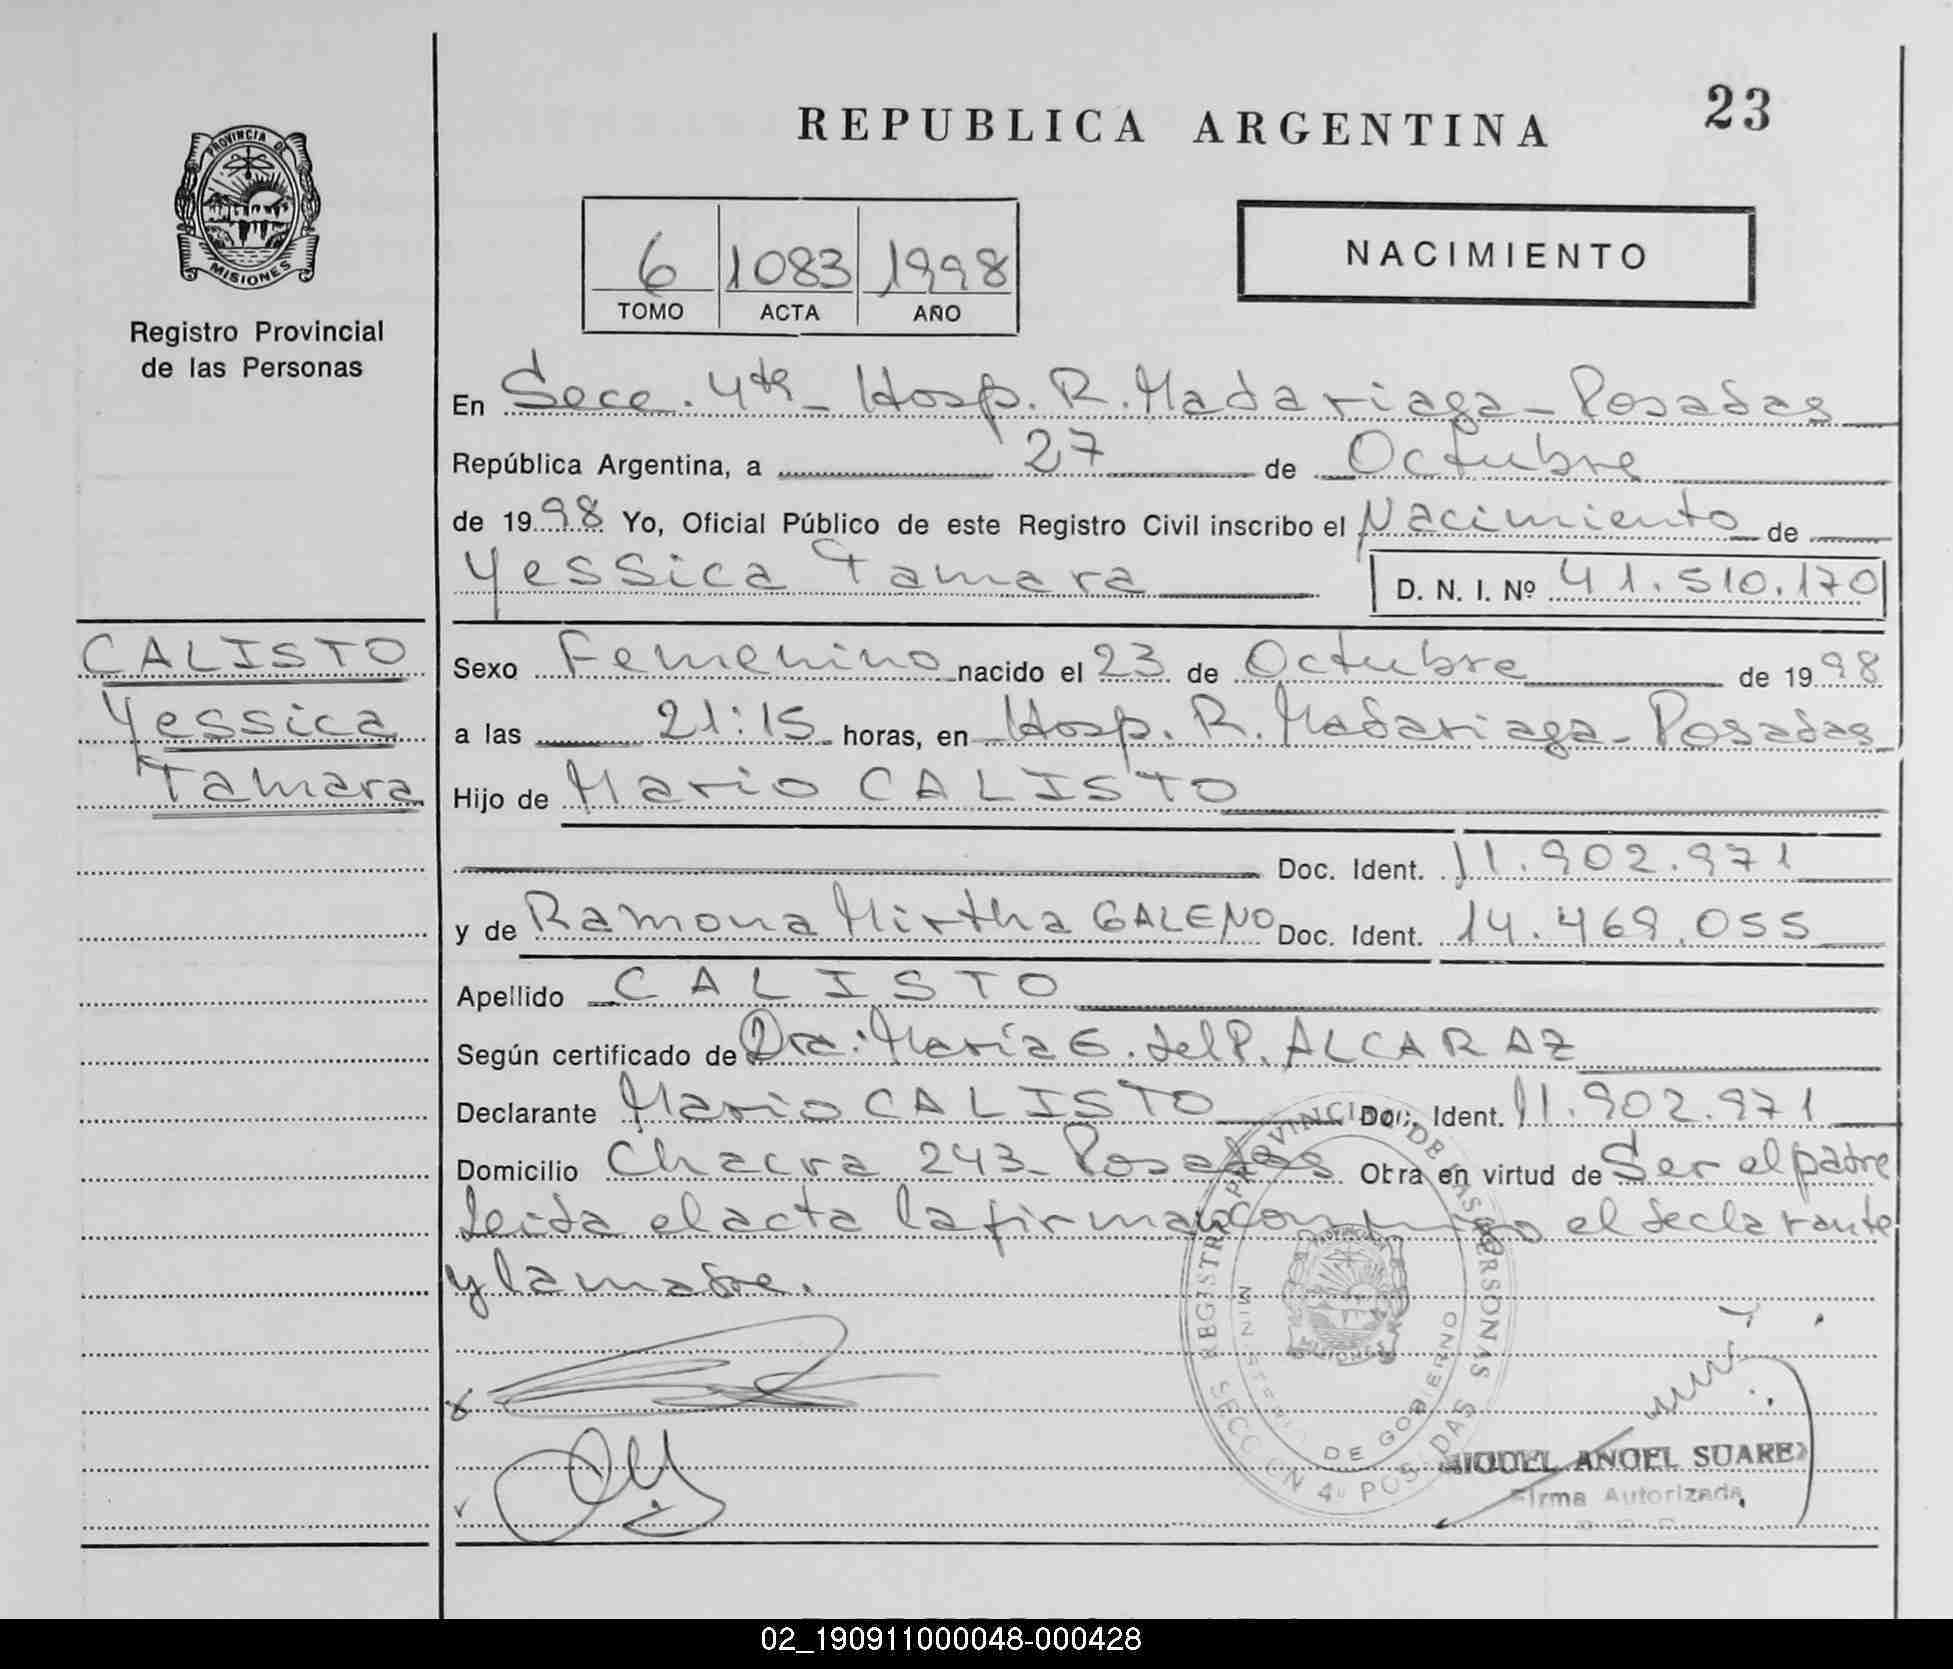 23
REPUBLICA ARGENTINA
PROVINCIA DE
MISIONES
Registro Provincial
de las Personas
6 1083 1998
TOMO ACTA AÑO
NACIMIENTO
En Secc. 4ta - Hosp. R. Madariaga - Posadas
República Argentina, a 27 de Octubre
de 1998 Yo, Oficial Público de este Registro Civil inscribo el Nacimiento de
Yessica Tamara D. N. I. Nº 41.510.170
CALISTO
Yessica
Tamara
Sexo Femenino nacido el 23 de Octubre de 1998
a las 21:15 horas, en Hosp. R. Madariaga - Posadas
Hijo de Mario CALISTO
Doc. Ident. 11.902.971
y de Ramona Mirtha GALENO Doc. Ident. 14.469.055
Apellido CALISTO
Según certificado de Dra: María G. del P. ALCARAZ
Declarante Mario CALISTO Doc. Ident. 11.902.971
Domicilio Chacra 243 - Posadas Obra en virtud de Ser el padre
Leida el acta la firman conmigo el declarante
y la madre.
REGISTRO PROVINCIAL DE LAS PERSONAS
MINISTERIO DE GOBIERNO
SECCION 4º POSADAS
MISIONES
MIGUEL ANGEL SUAREZ
Firma Autorizada
02_190911000048-000428